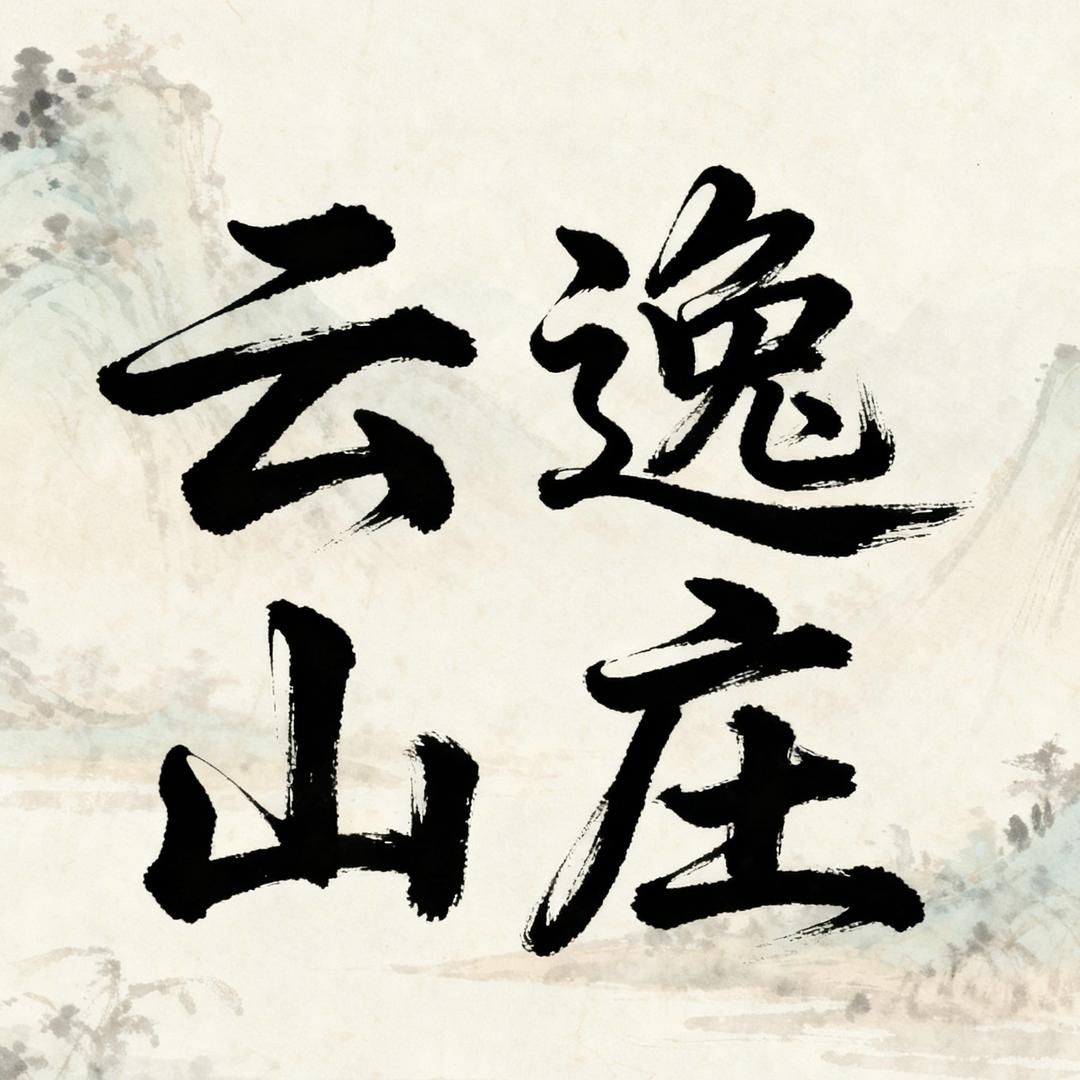 云逸
山庄